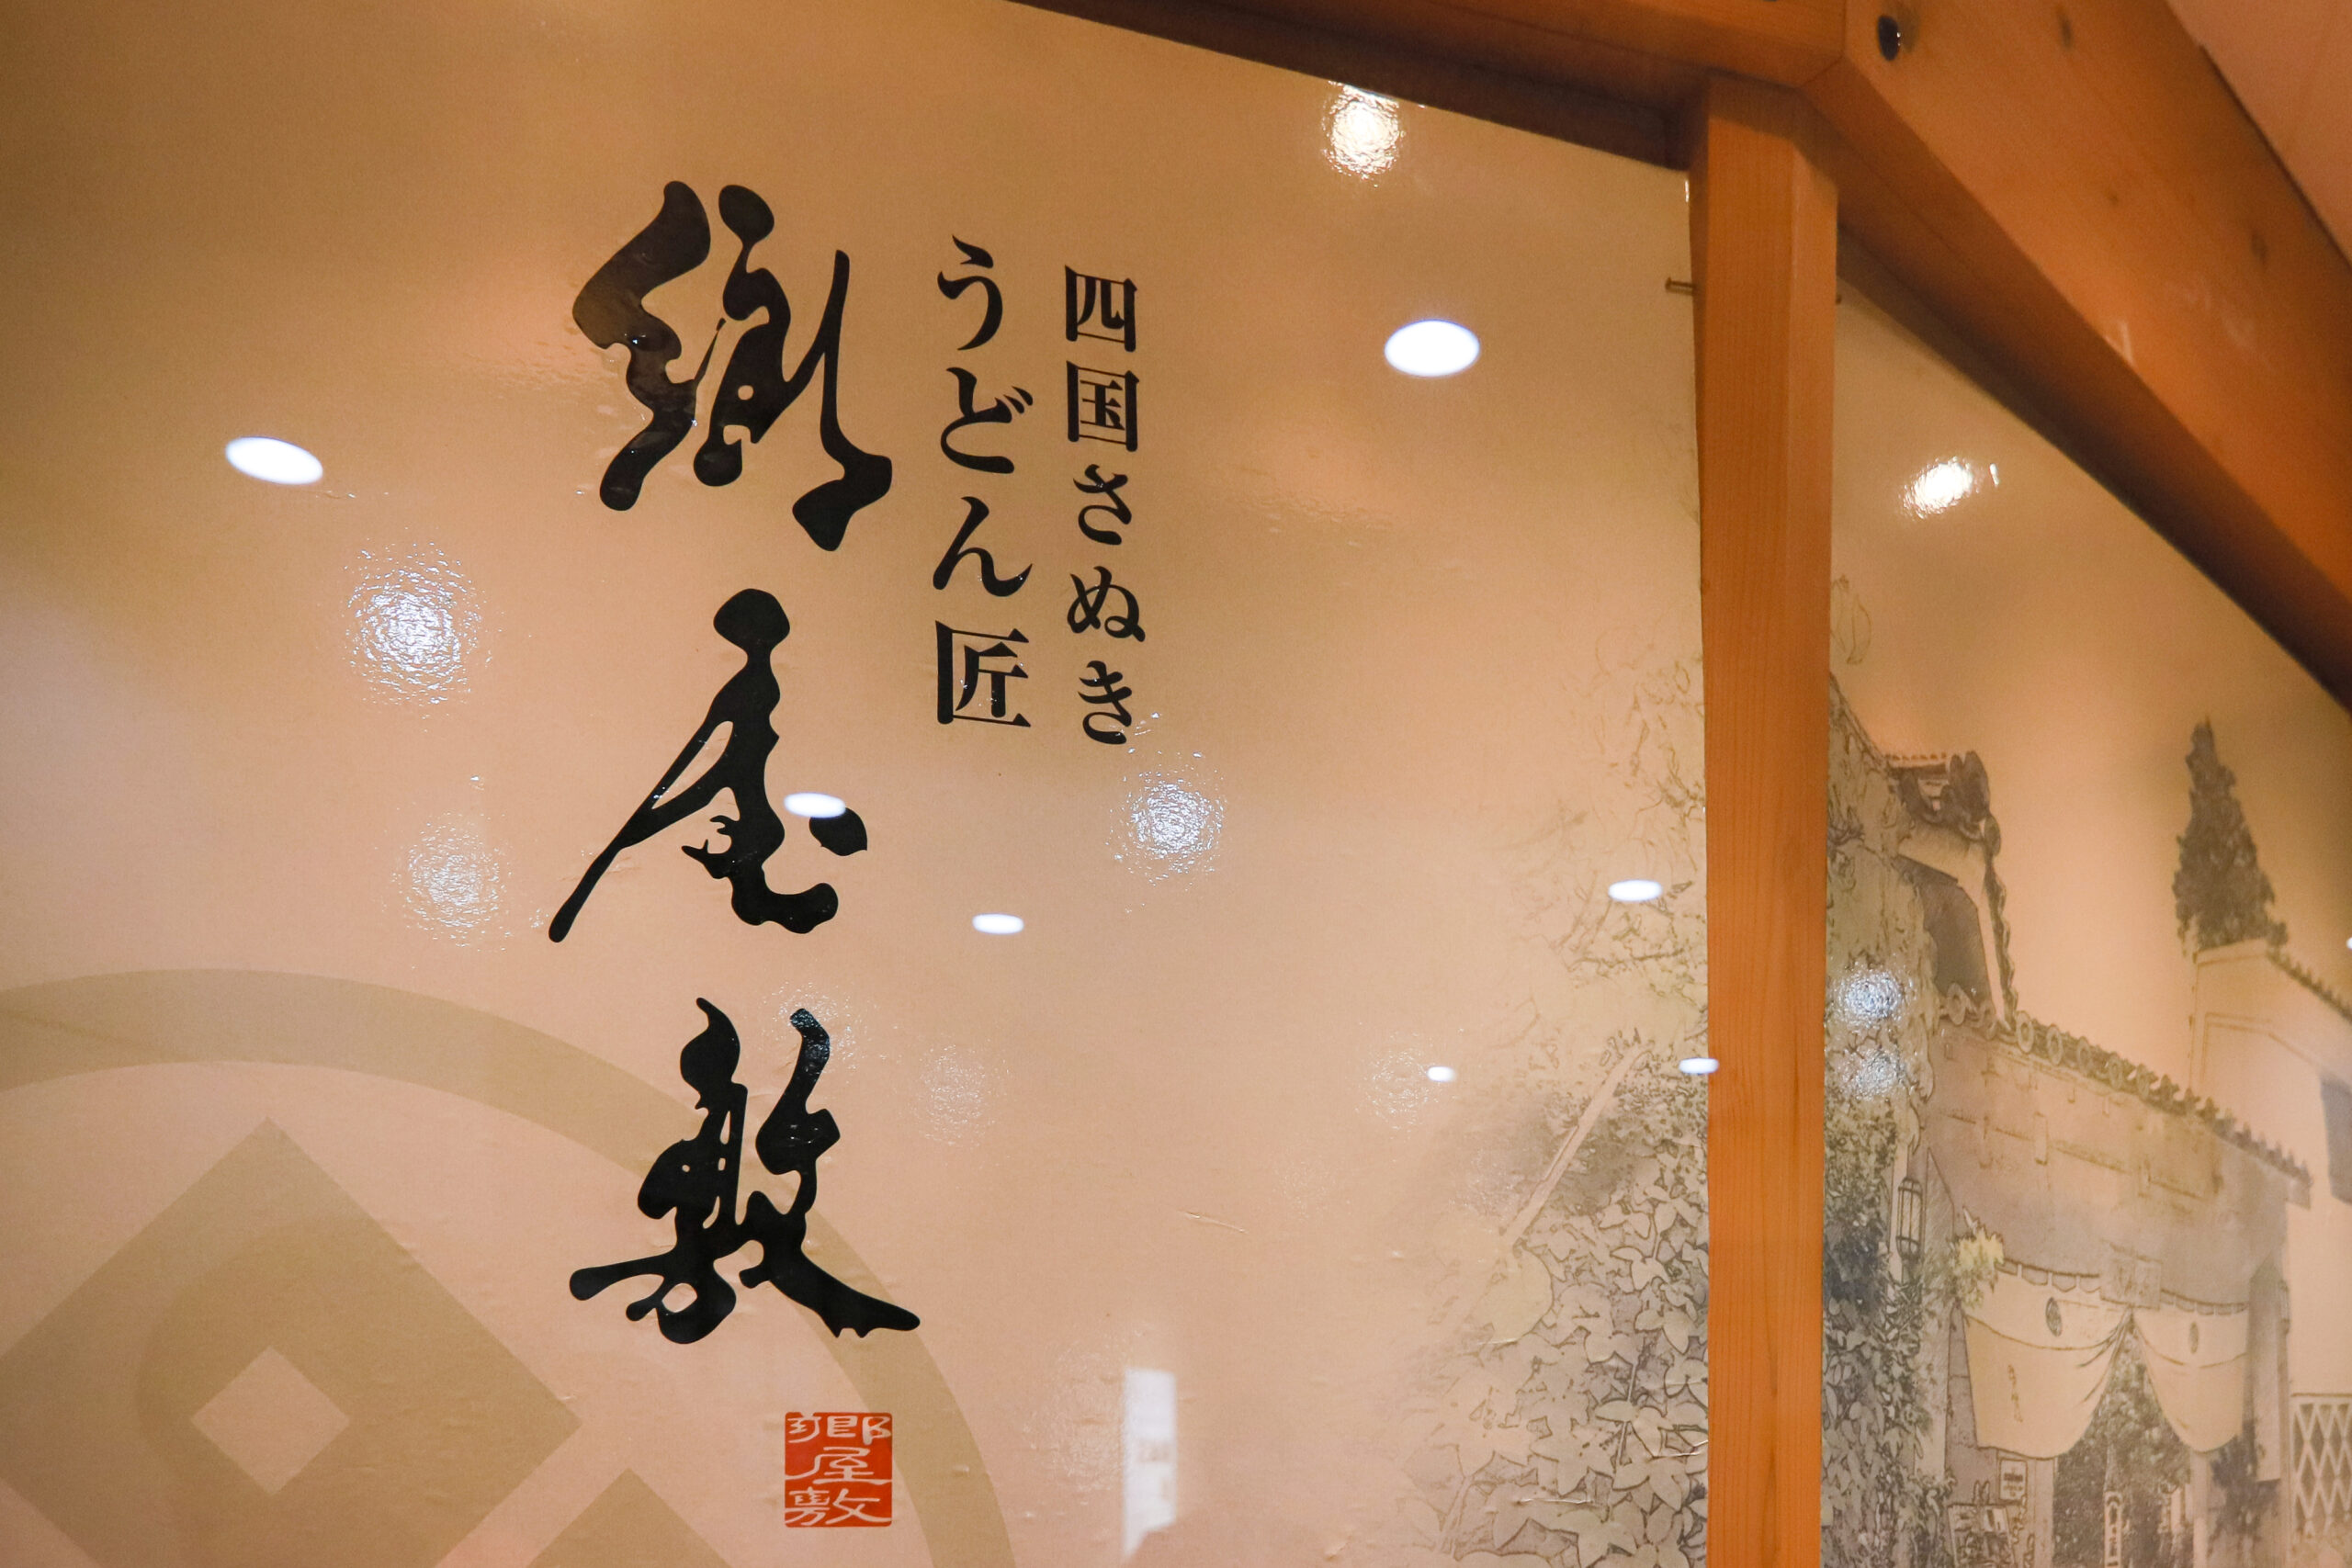 四国さぬき
うどん匠
郷屋敷
郷屋敷